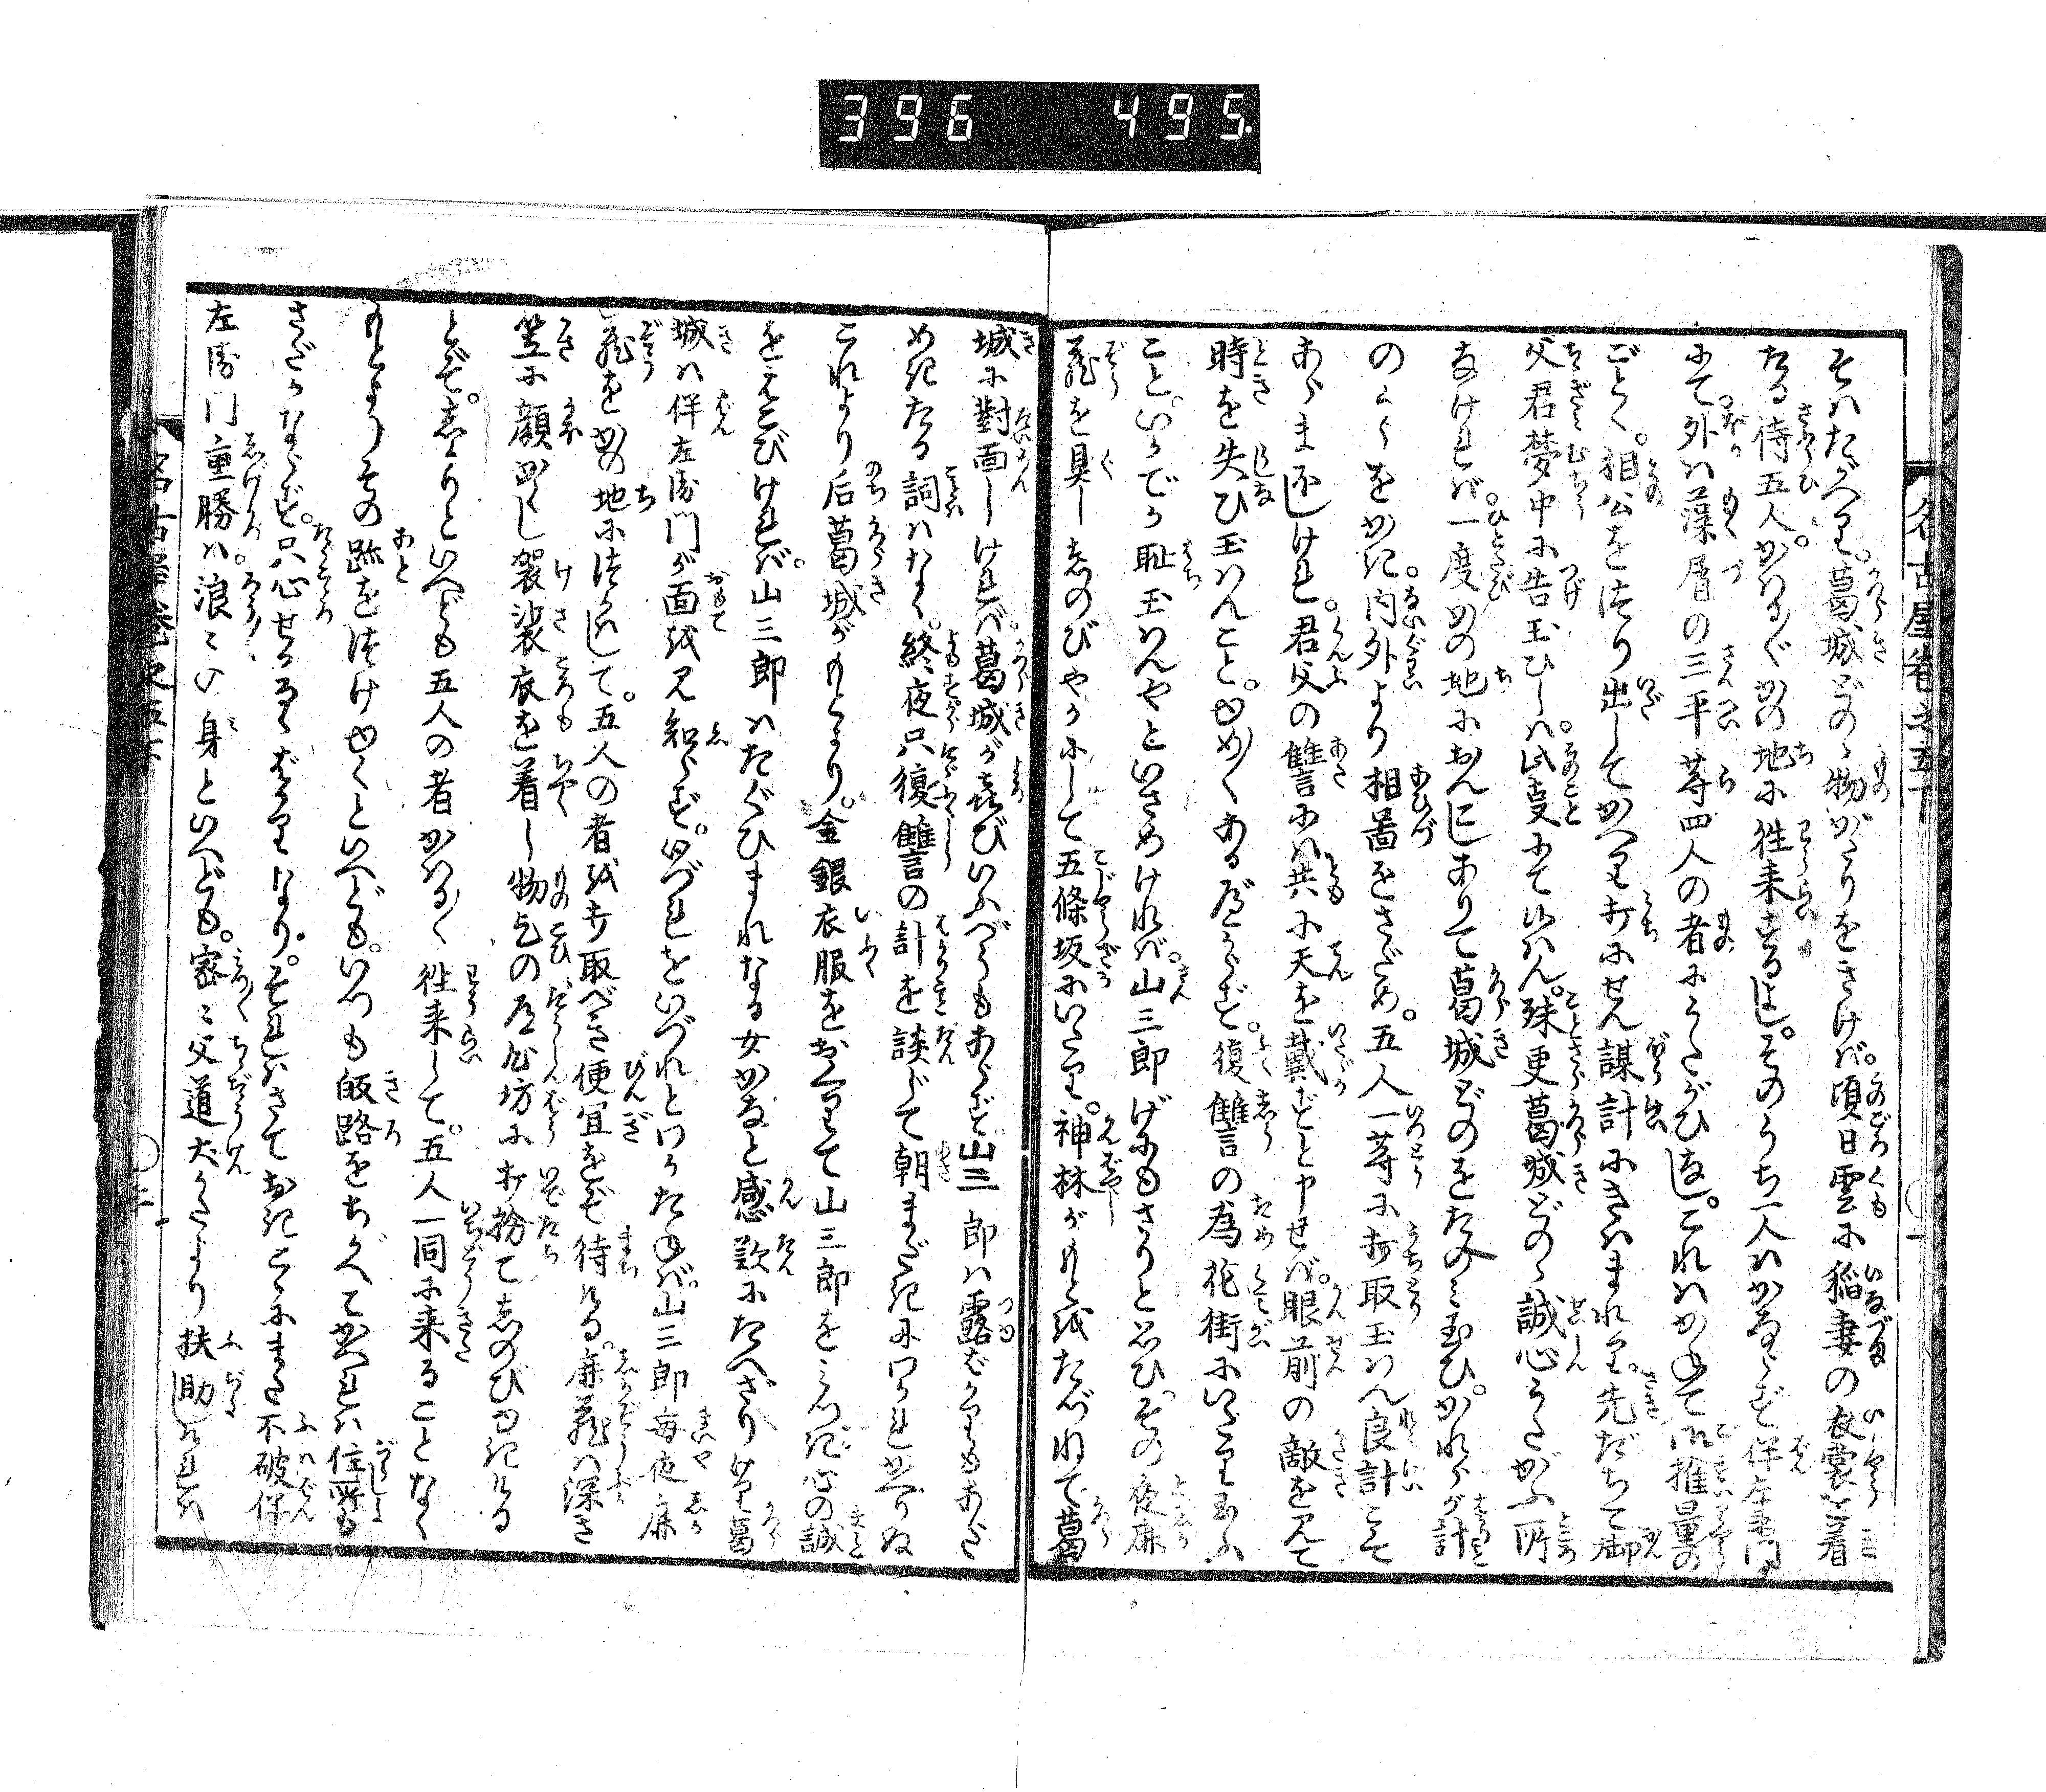 396 495
名古屋巻之五下
そはたがへり。葛城どのゝ物がたりをきけば。頃日雲に稲妻の衣裳を着
たる侍五人。かはる〴〵かの地に往来するよし。そのうち一人はかならず伴左衛門
にて外は藻屑の三平等四人の者にうたがひなし。これはかねて御推量の
ごとく。相公をつり出してかへり打にせん謀計にきはまれり。先だちて御
父君夢中に告玉ひしは。此支にて候はん。殊更葛城どのゝ誠心うたがふ所
なければ。一度かの地におんこしありて葛城どのをたのみ玉ひ。かれらが計
のうらをかき。内外より相図をさだめ。五人一等に打取玉はん良計こそ
あらまほしけれ。君父の讐には共に天を戴ずと申せば。眼前の敵を見て
時を失ひ玉はんこと。ゆめ〳〵あるべからず。復讐の為花街にいたり玉ふ
こと。いかでか恥玉はんやといさめければ。山三郎げにもさりと思ひ。その夜鹿
蔵を具ししのびやかにして五條坂にいたり。神林がもとをたづねて葛
城に對面しければ。葛城が喜びいふべうもあらず山三郎は露ばかりもあだ
めきたる詞はなく。終夜只復讐の計を談じて朝まだきにわかれかへりぬ
これより后葛城がもとより。金銀衣服をおくりて山三郎をみつぎ心の誠
をはこびければ。山三郎はたぐひまれなる女かなと感歎にたへざりけり葛
城は伴左衛門が面を見知らず。いづれをいづれとわかたねば。山三郎毎夜鹿
蔵をかの地につかはして。五人の者を打取べき便宜をぞ待ける。鹿蔵は深き
笠に顔かくし袈裟衣を着し物乞の道心坊に打扮てしのびゆきける
とぞ。しかりといへども五人の者かはる〴〵往来して。五人一同に来ることなく
もとよりその跡をつけゆくといへども。いつも皈路をちがへてかへれば住所も
さだかならず。只心せかるゝばかりなり。それはさておきこゝにまた不破伴
左衛門重勝は。浪〻の身といへども。密〻父道犬かたより扶助しければ